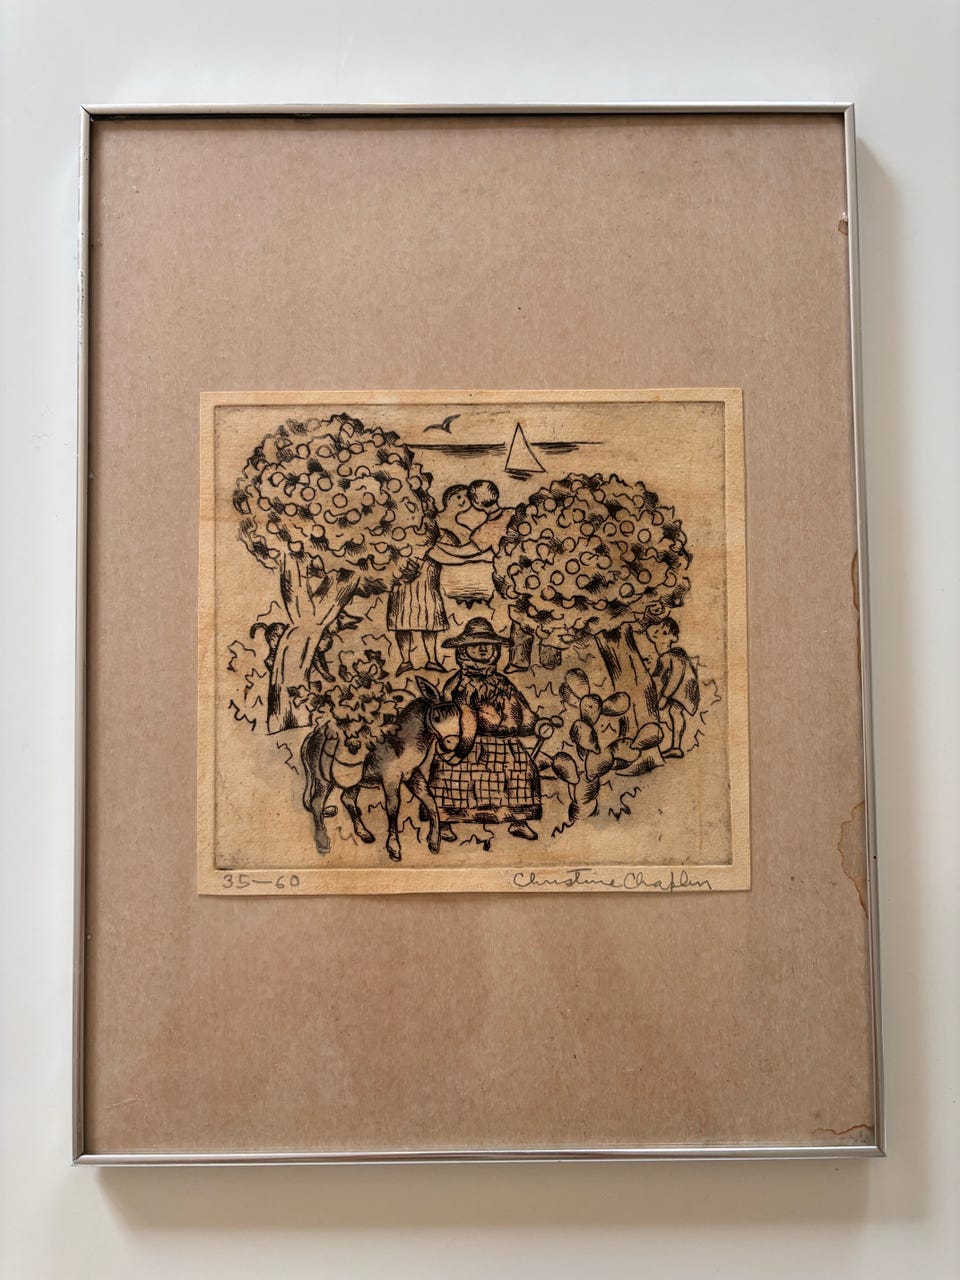 35-60
Christine Chaplin